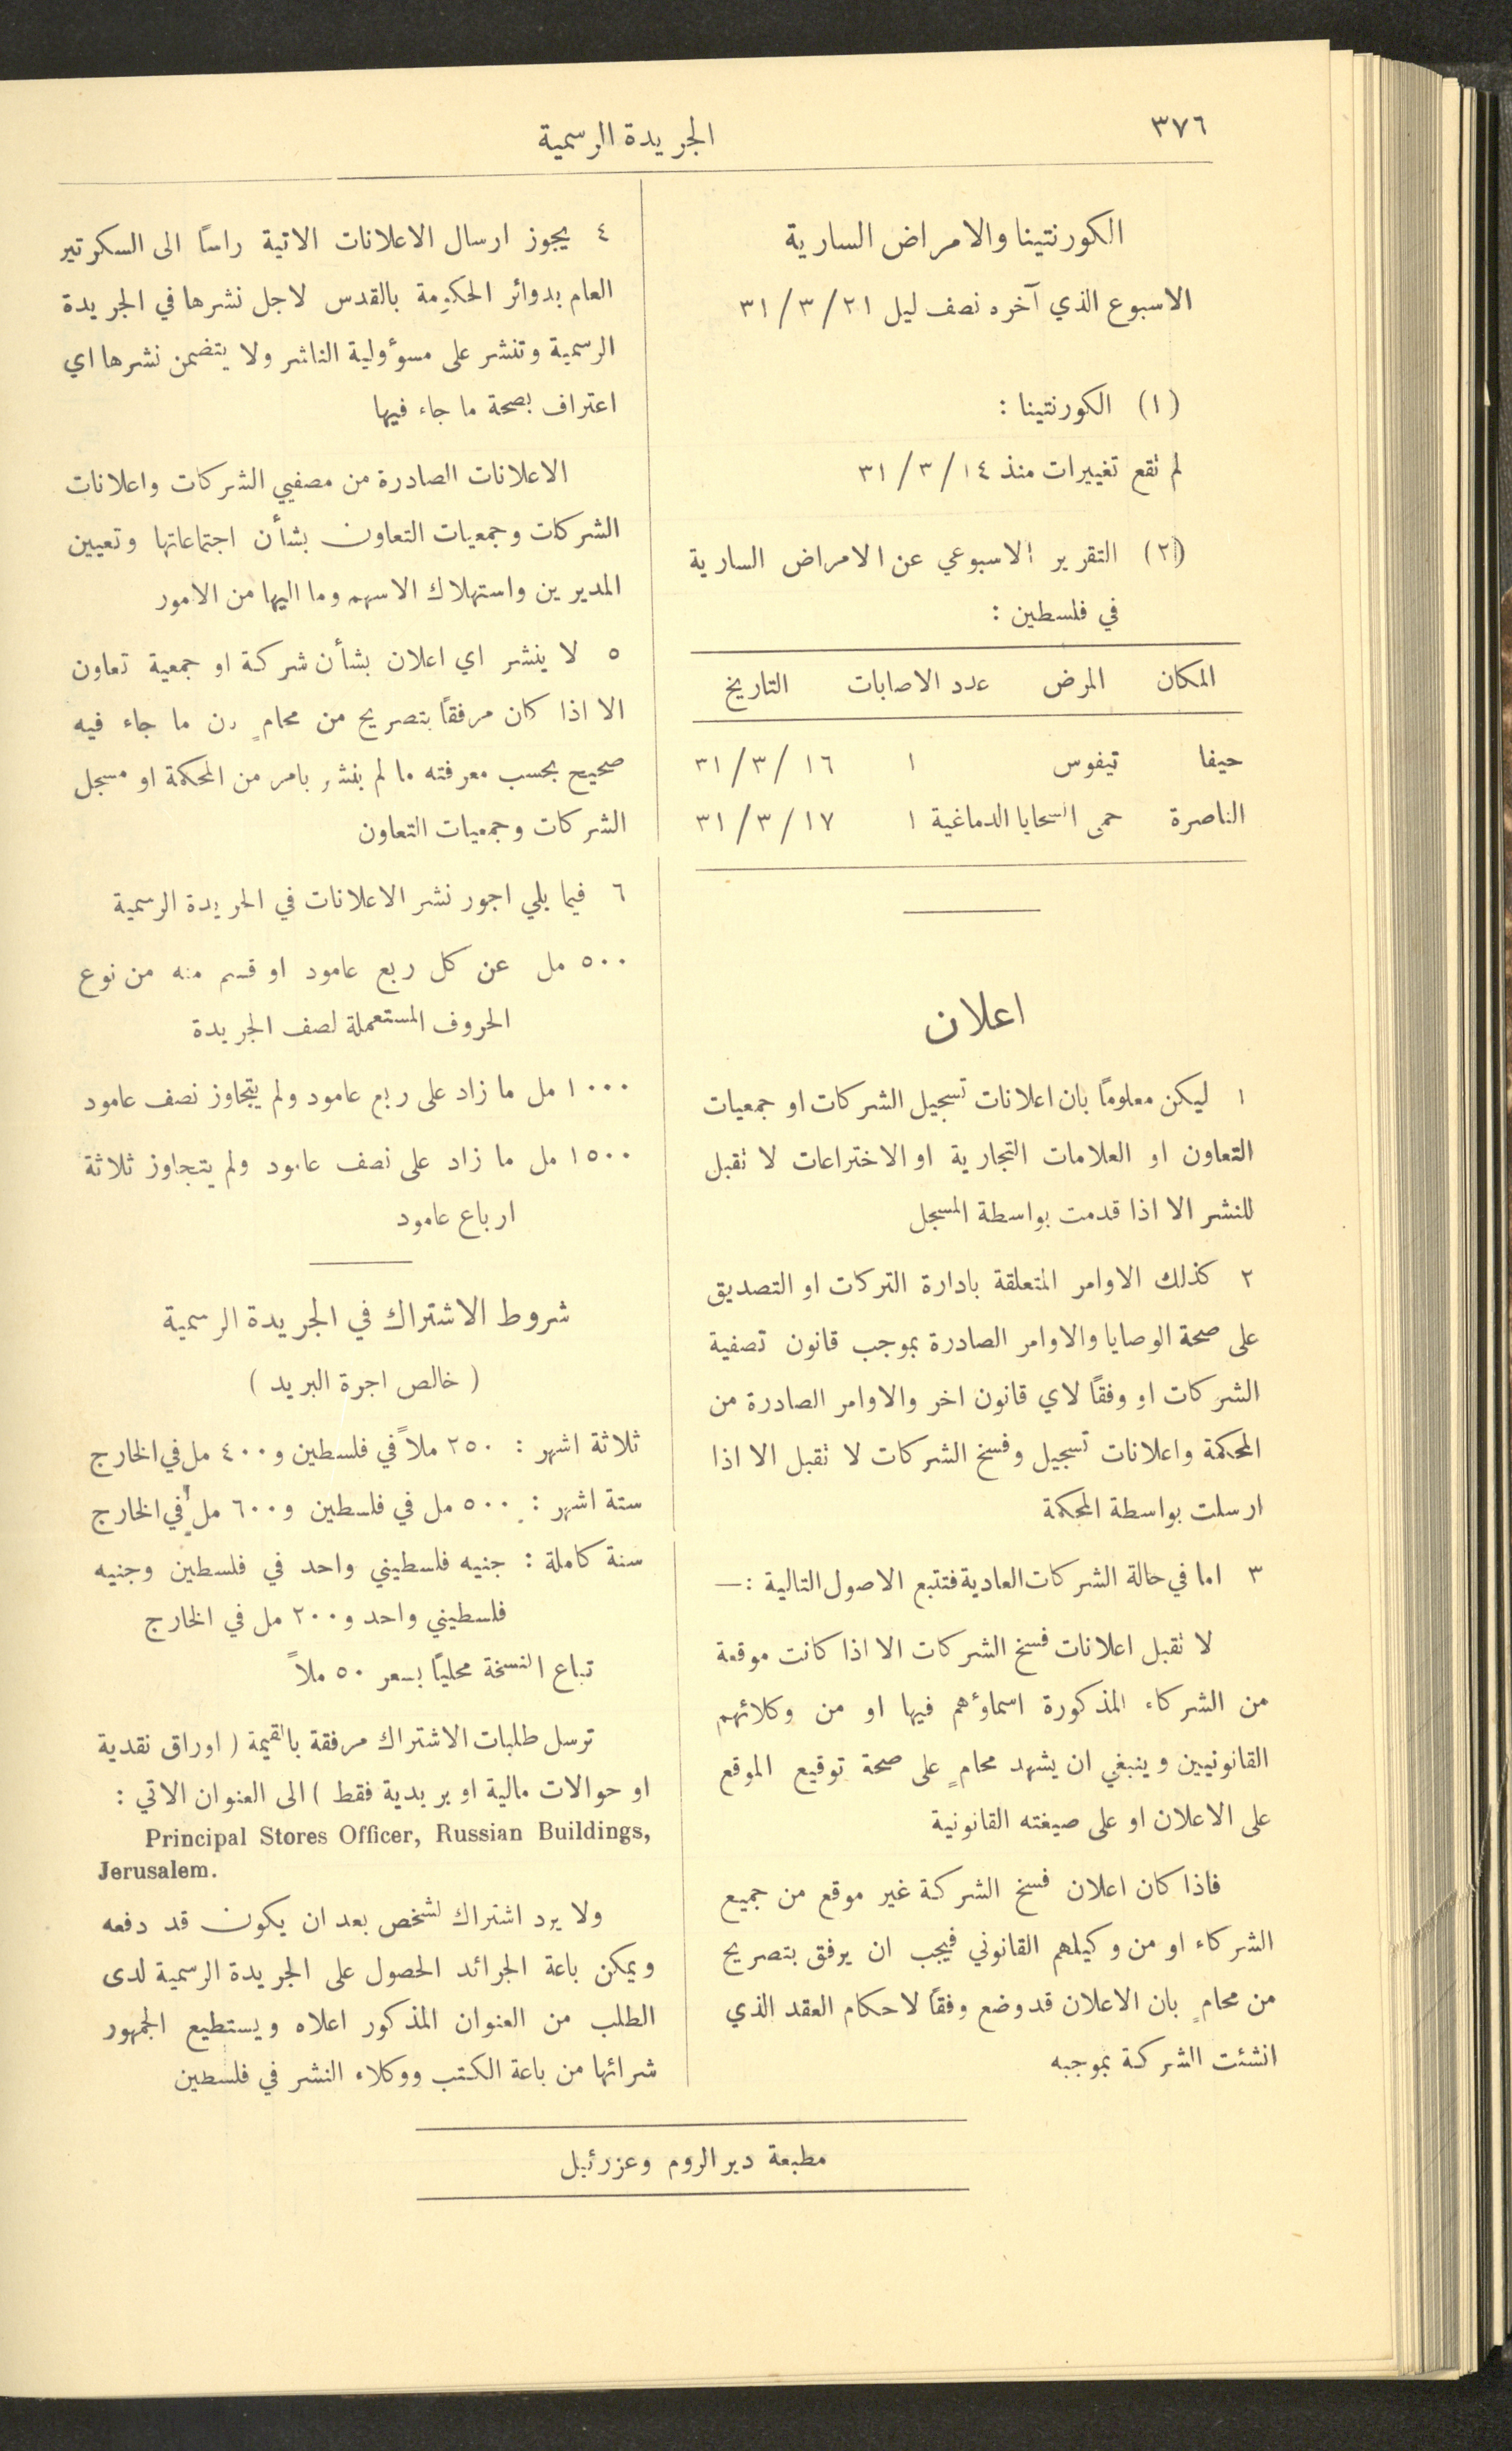 ٣٧٦
الجريدة الرسمية
الكورنتينا والامراض السارية
الاسبوع الذي آخره نصف ليل ٢١/٣/٣١
(١) الكورنتينا :
لم تقع تغييرات منذ ١٤/٣/٣١
(٢) التقرير الاسبوعي عن الامراض السارية
في فلسطين :
المكان المرض عدد الاصابات التاريخ
حيفا تيفوس ١ ١٦/٣/٣١
الناصرة حمى السحايا الدماغية ١ ١٧/٣/٣١
اعلان
١ ليكن معلوماً بان اعلانات تسجيل الشركات او جمعيات
التعاون او العلامات التجارية او الاختراعات لا تقبل
للنشر الا اذا قدمت بواسطة المسجل
٢ كذلك الاوامر المتعلقة بادارة التركات او التصديق
على صحة الوصايا والاوامر الصادرة بموجب قانون تصفية
الشركات او وفقاً لاي قانون اخر والاوامر الصادرة من
المحكمة واعلانات تسجيل وفسخ الشركات لا تقبل الا اذا
ارسلت بواسطة المحكمة
٣ اما في حالة الشركات العادية فتتبع الاصول التالية :—
لا تقبل اعلانات فسخ الشركات الا اذا كانت موقعة
من الشركاء المذكورة اسماؤهم فيها او من وكلائهم
القانونيين وينبغي ان يشهد محامٍ على صحة توقيع الموقع
على الاعلان او على صيغته القانونية
فاذا كان اعلان فسخ الشركة غير موقع من جميع
الشركاء او من وكيلهم القانوني فيجب ان يرفق بتصريح
من محامٍ بان الاعلان قد وضع وفقاً لاحكام العقد الذي
انشئت الشركة بموجبه
٤ يجوز ارسال الاعلانات الاتية راساً الى السكرتير
العام بدوائر الحكومة بالقدس لاجل نشرها في الجريدة
الرسمية وتنشر على مسؤولية الناشر ولا يتضمن نشرها اي
اعتراف بصحة ما جاء فيها
الاعلانات الصادرة من مصفيي الشركات واعلانات
الشركات وجمعيات التعاون بشأن اجتماعاتها وتعيين
المديرين واستهلاك الاسهم وما اليها من الامور
٥ لا ينشر اي اعلان بشأن شركة او جمعية تعاون
الا اذا كان مرفقاً بتصريح من محامٍ ان ما جاء فيه
صحيح بحسب معرفته ما لم ينشر بامر من المحكمة او مسجل
الشركات وجمعيات التعاون
٦ فيما يلي اجور نشر الاعلانات في الجريدة الرسمية
٥٠٠ مل عن كل ربع عامود او قسم منه من نوع
الحروف المستعملة لصف الجريدة
١٠٠٠ مل ما زاد على ربع عامود ولم يتجاوز نصف عامود
١٥٠٠ مل ما زاد على نصف عامود ولم يتجاوز ثلاثة
ارباع عامود
شروط الاشتراك في الجريدة الرسمية
( خالص اجرة البريد )
ثلاثة اشهر : ٢٥٠ ملاً في فلسطين و ٤٠٠ مل في الخارج
ستة اشهر : ٥٠٠ مل في فلسطين و ٦٠٠ مل في الخارج
سنة كاملة : جنيه فلسطيني واحد في فلسطين وجنيه
فلسطيني واحد و ٢٠٠ مل في الخارج
تباع النسخة محلياً بسعر ٥٠ ملاً
ترسل طلبات الاشتراك مرفقة بالقيمة ( اوراق نقدية
او حوالات مالية او بريدية فقط ) الى العنوان الاتي :
Principal Stores Officer, Russian Buildings,
Jerusalem.
ولا يرد اشتراك لشخص بعد ان يكون قد دفعه
ويمكن باعة الجرائد الحصول على الجريدة الرسمية لدى
الطلب من العنوان المذكور اعلاه ويستطيع الجمهور
شرائها من باعة الكتب ووكلاء النشر في فلسطين
مطبعة دير الروم وعزرئيل